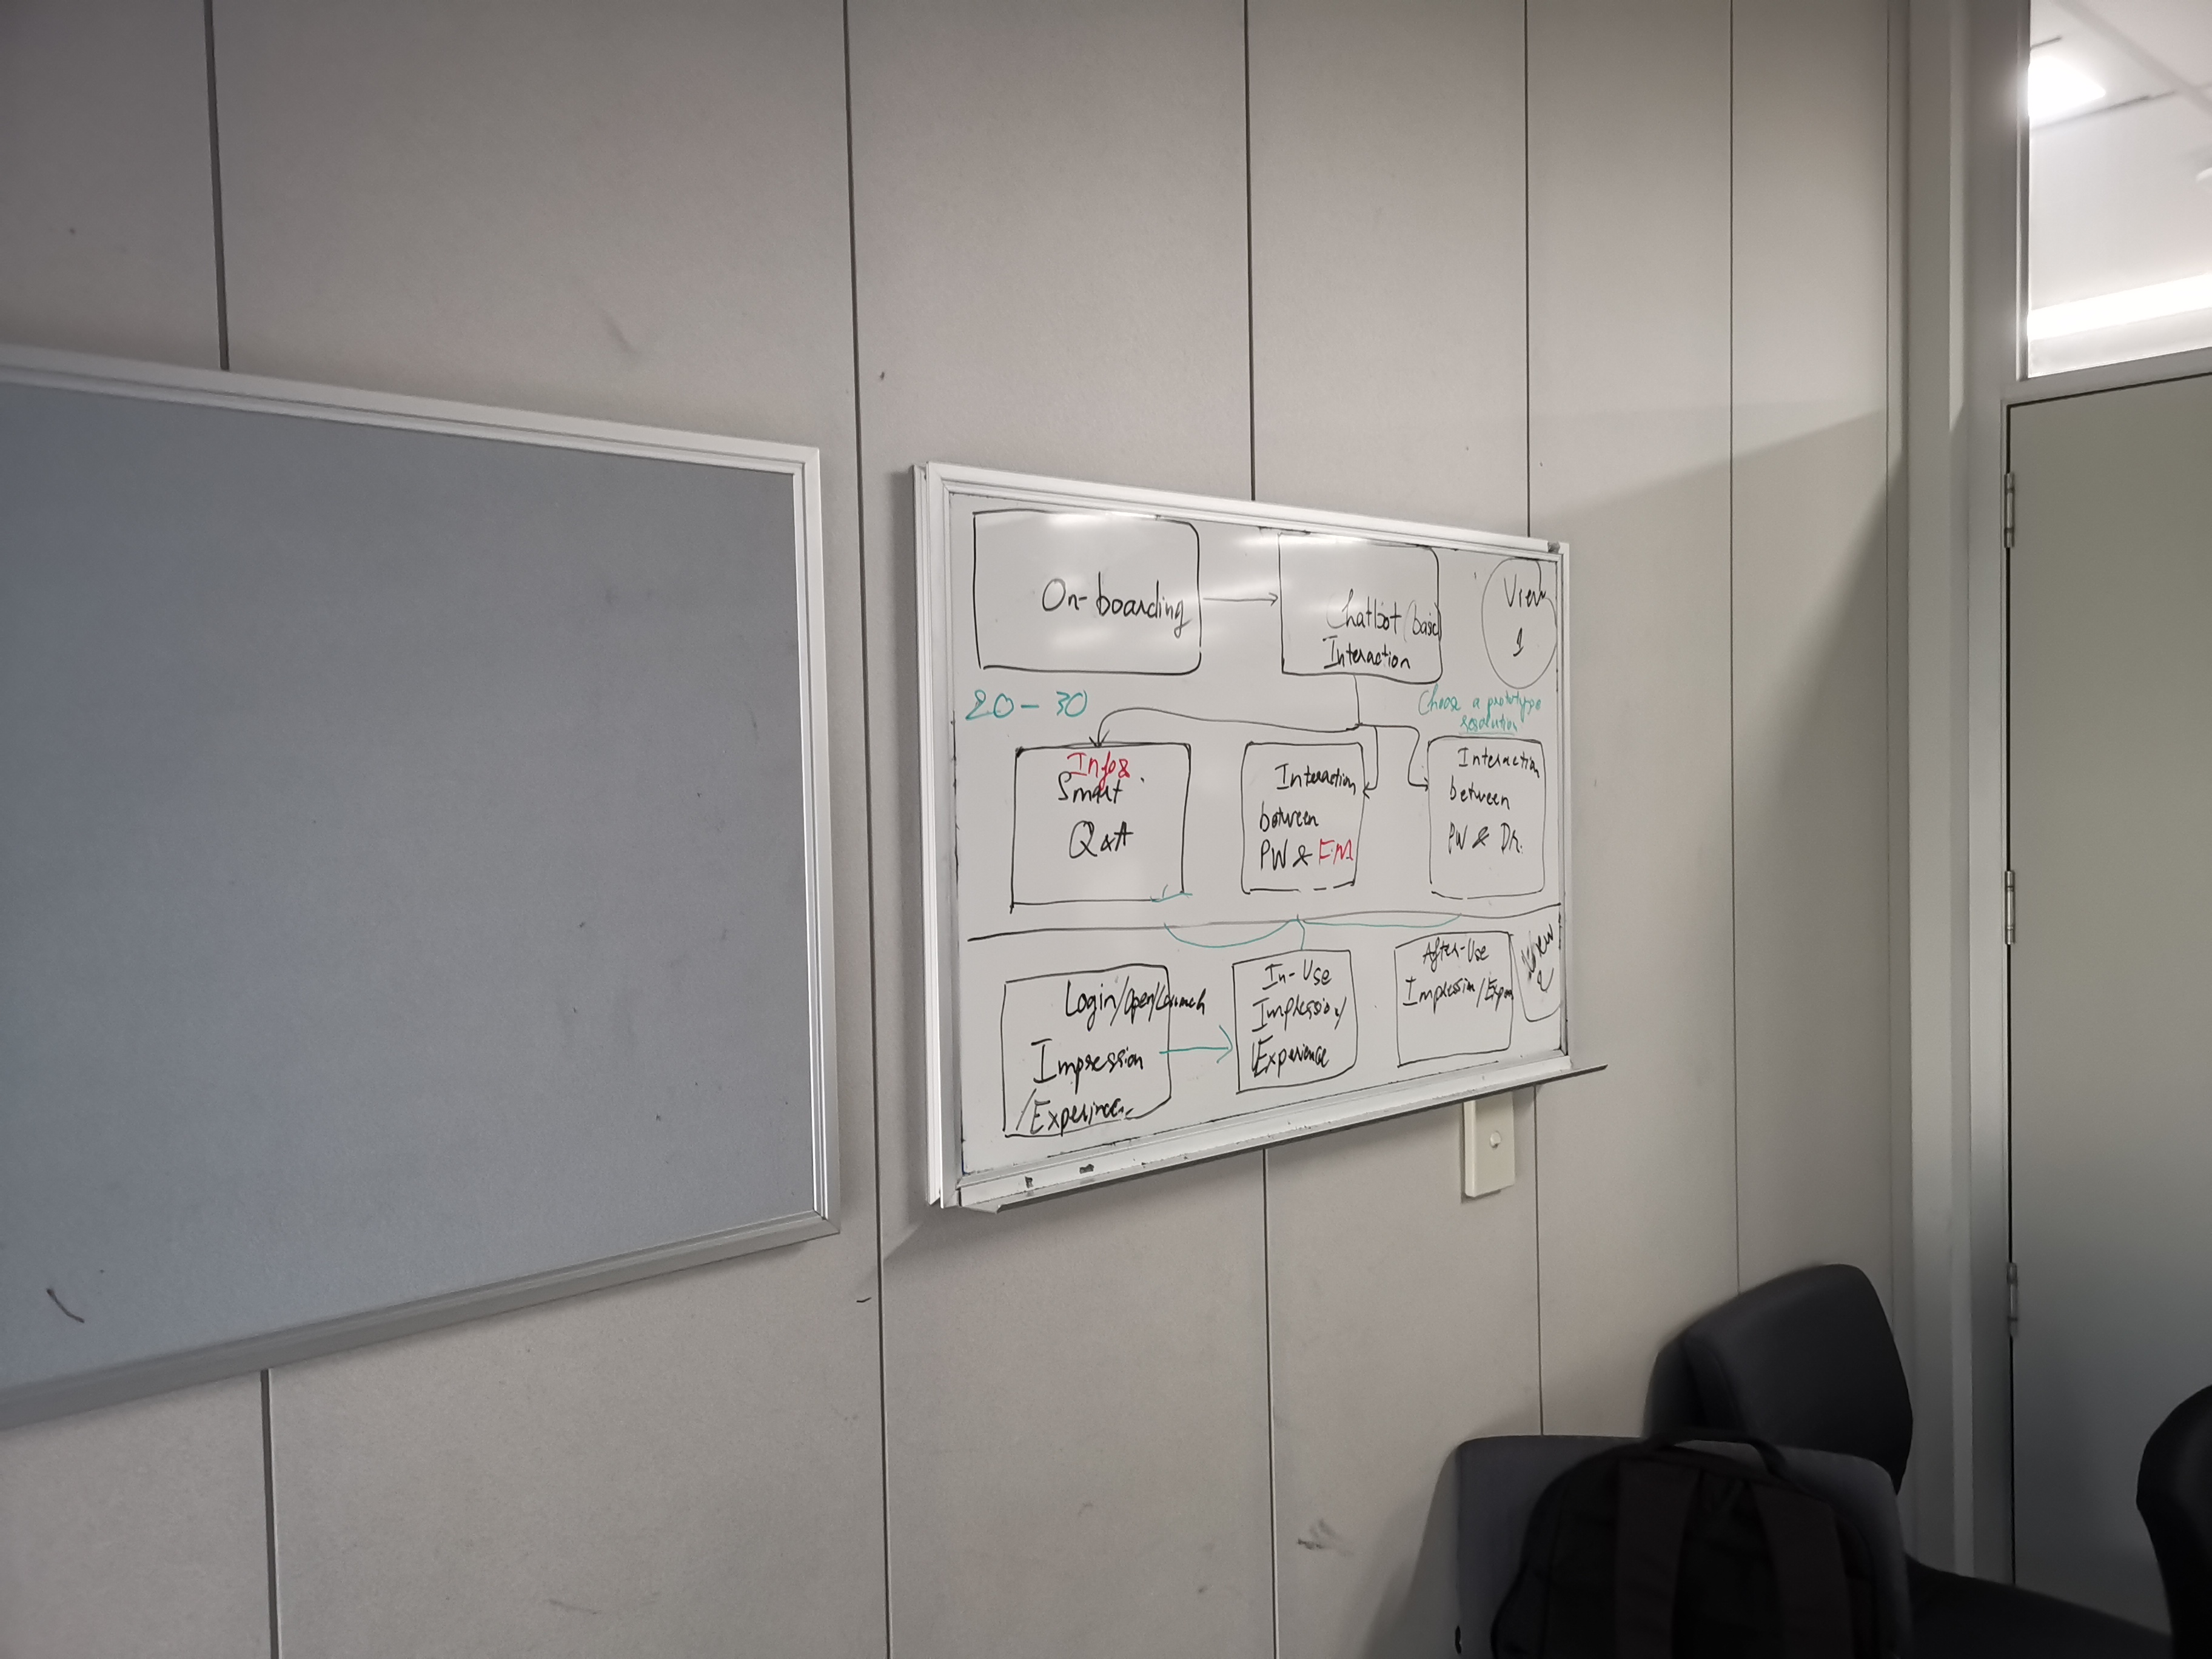 On-boarding
Chatbot (basic
Interaction
View
1
20-30
Choose a prototype
resolution
Info &
Smart
Q&A
Interaction
between
PW & FM
Interaction
between
PW & Dr.
Login/Open/Launch
Impression
/Experience
In-Use
Impression/
/Experience
After-Use
Impression/Exper
View
2